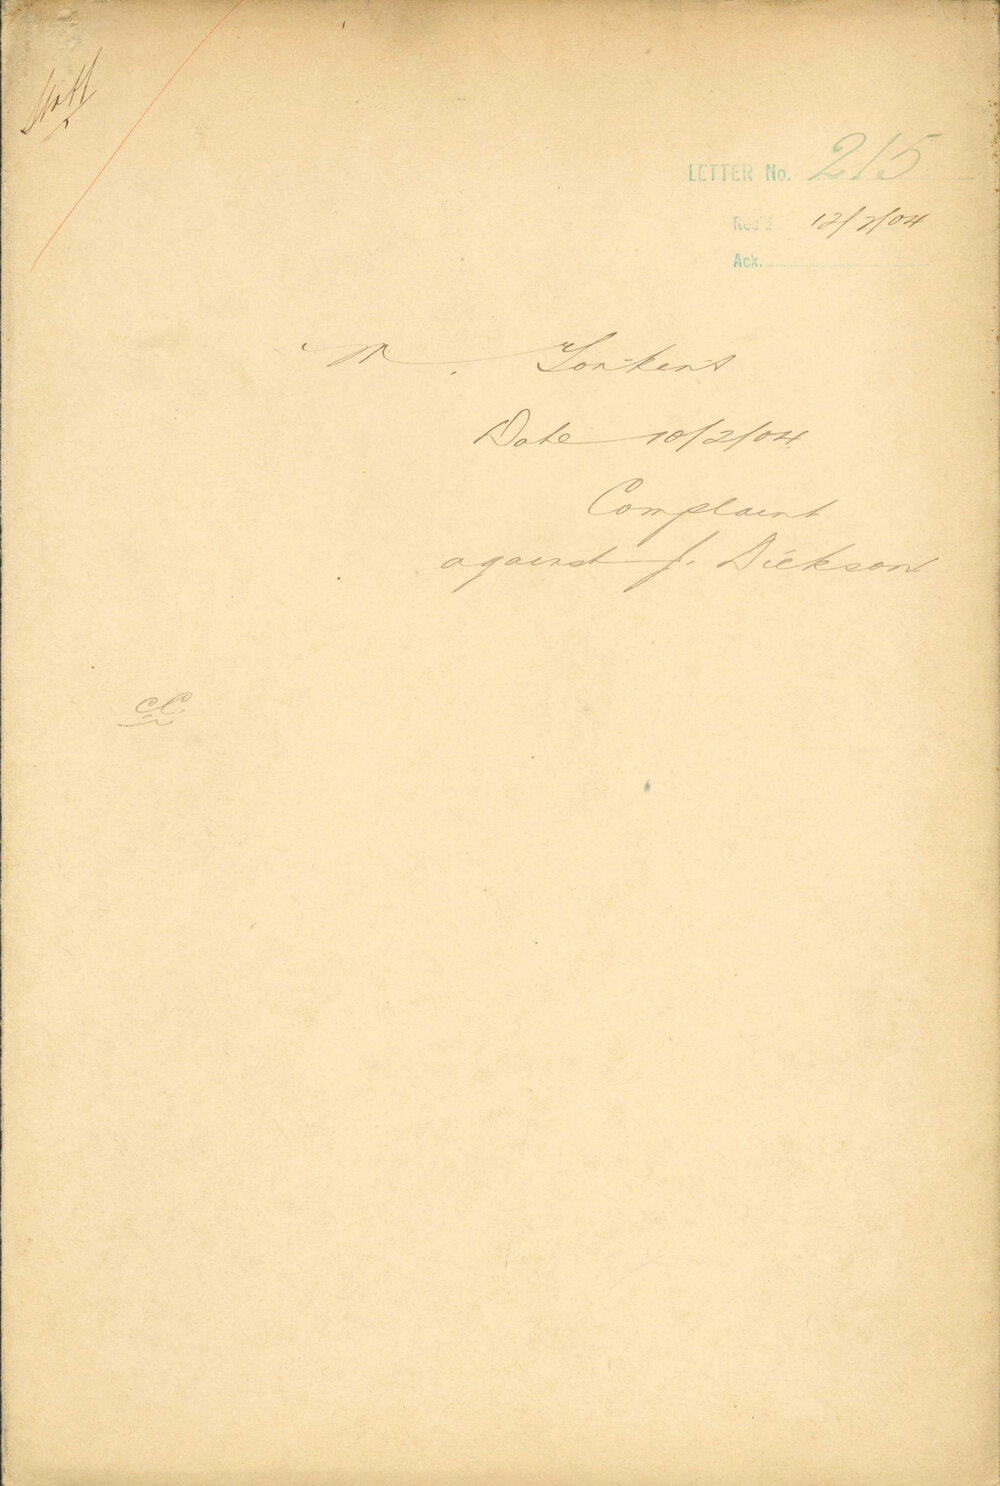 LETTER No. 215
Rec'd 12/2/04
Ack.
Date 10/2/04
Complaint
against J. Dickson